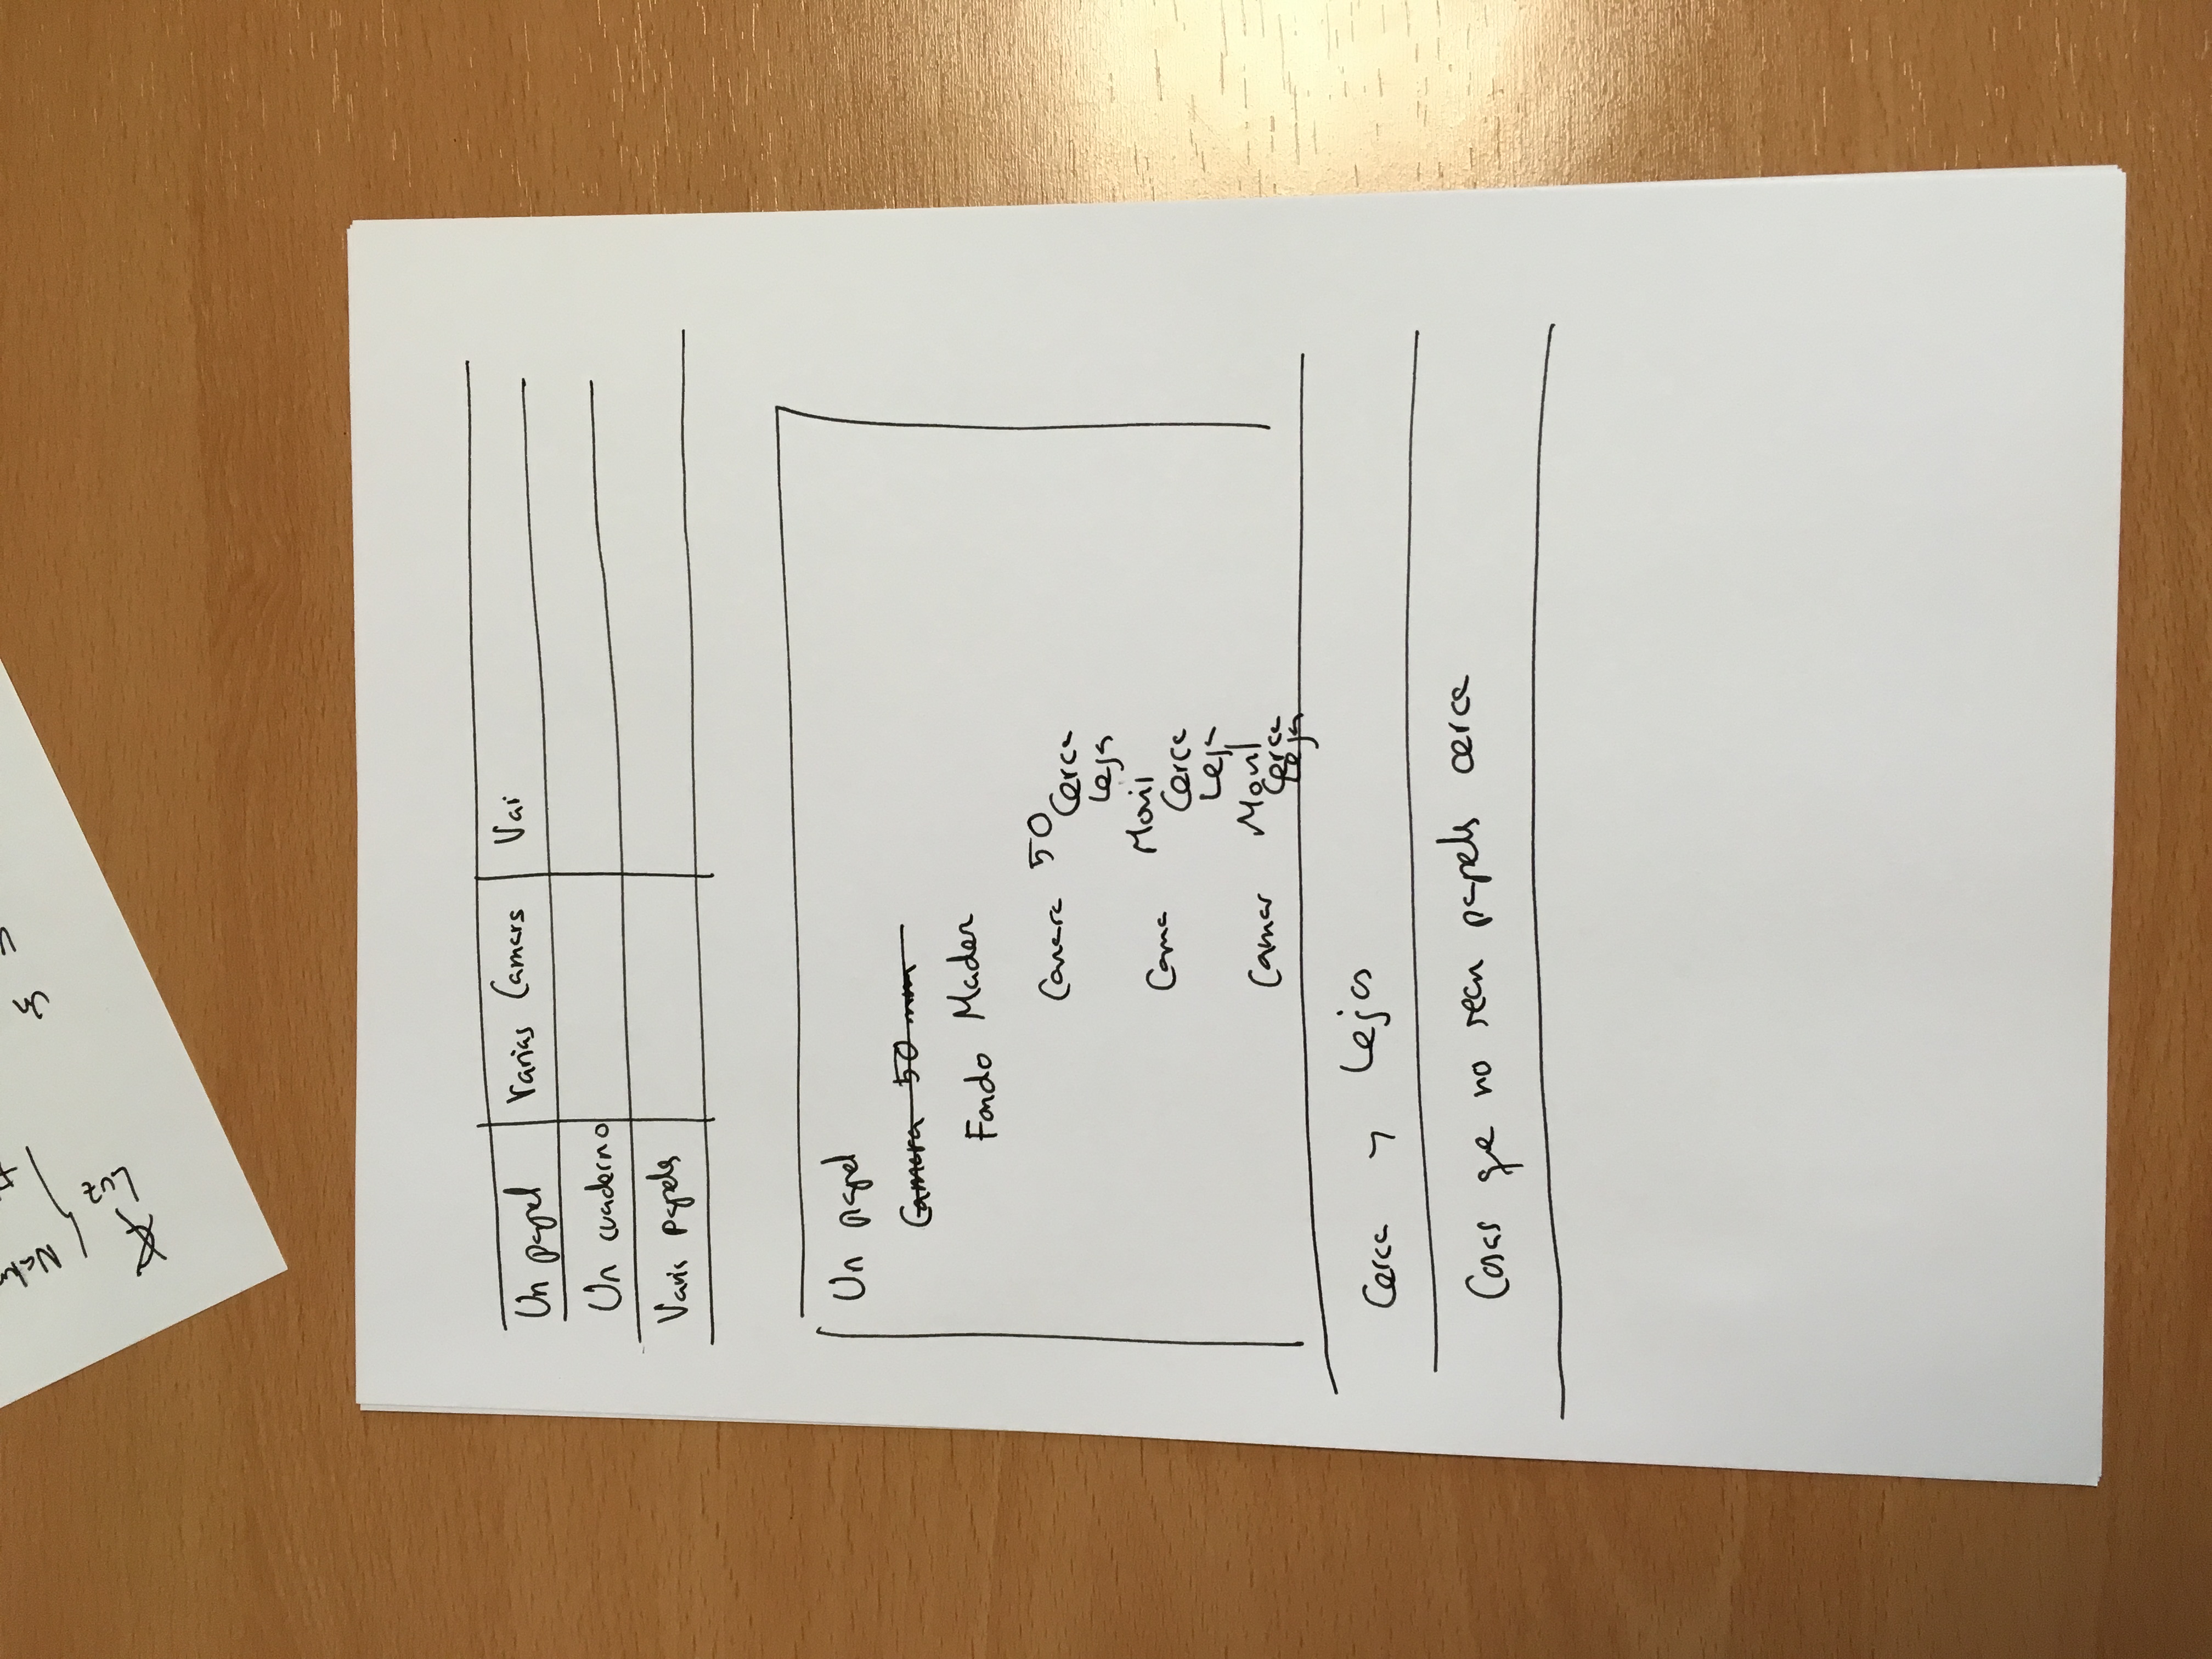 Luz
Un papel Varias Camars Vai
Un cuaderno
Varis papels
Un papel
Camara 50 mm
Fondo Mader
Camara 50
Cerca
Leja
Cama Movil
Cerca
Leja
Camar Movil
Cerca
Leja
Cerca y Lejos
Cosas que no sean papels cerca